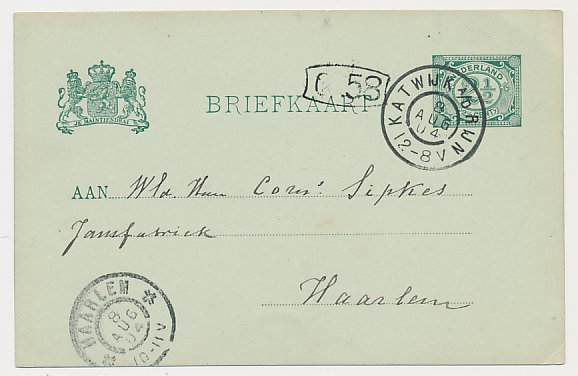 JE MAINTIENDRAI
BRIEFKAART
58
NEDERLAND
KATWIJK A/D RIJN
8
AUG
04
12-8V
AAN Wld. Heer Corns. Sipkes
Jamfabriek
Haarlem
HAARLEM
8
AUG
04
10-11V